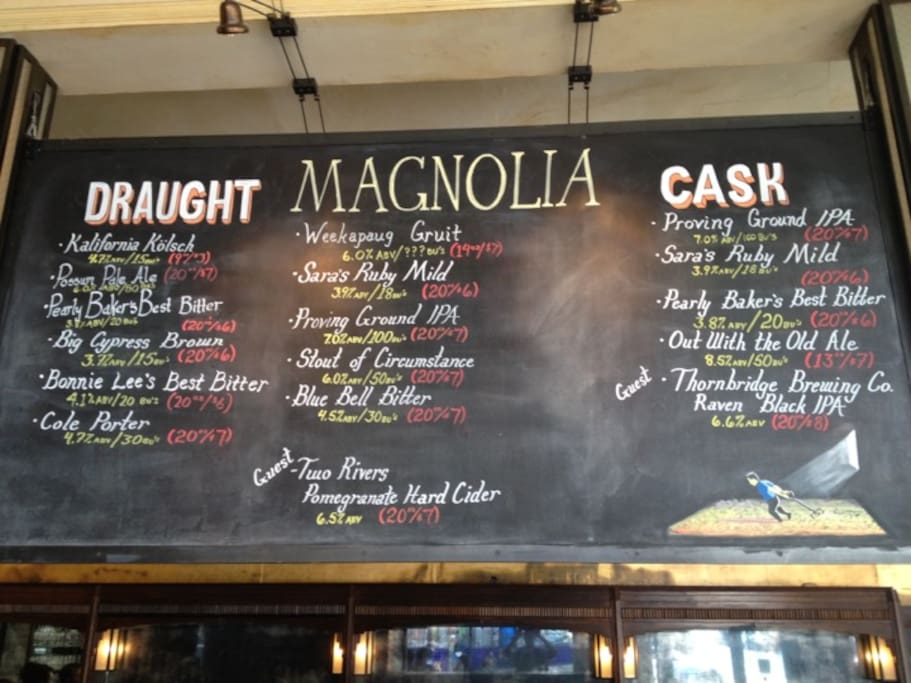 MAGNOLIA
DRAUGHT
·Kalifornia Kölsch
4.7% ABV/15BU's (9oz/$3)
·Possum Pale Ale (20oz/$7)
·Pearly Baker's Best Bitter
3.8% ABV/20 BU's (20oz/$6)
·Big Cypress Brown
3.7% ABV/15 BU's (20oz/$6)
·Bonnie Lee's Best Bitter
4.1% ABV/20 BU's (20oz/$6)
·Cole Porter
4.7% ABV/30 BU's (20oz/$7)
·Weekapaug Gruit
6.0% ABV/???BU's (14oz/$7)
·Sara's Ruby Mild
3.9% ABV/18 BU's (20oz/$6)
·Proving Ground IPA
7.0% ABV/100BU's (20oz/$7)
·Stout of Circumstance
6.0% ABV/50BU's (20oz/$7)
·Blue Bell Bitter
4.5% ABV/30BU's (20oz/$7)
Guest -Two Rivers
Pomegranate Hard Cider
6.5% ABV (20oz/$7)
CASK
·Proving Ground IPA
7.0% ABV/100 BU's (20oz/$7)
·Sara's Ruby Mild
3.9% ABV/18 BU's (20oz/$6)
·Pearly Baker's Best Bitter
3.8% ABV/20 BU's (20oz/$6)
·Out With the Old Ale
8.5% ABV/50BU's (13oz/$7)
Guest ·Thornbridge Brewing Co.
Raven Black IPA
6.6% ABV (20oz/$8)